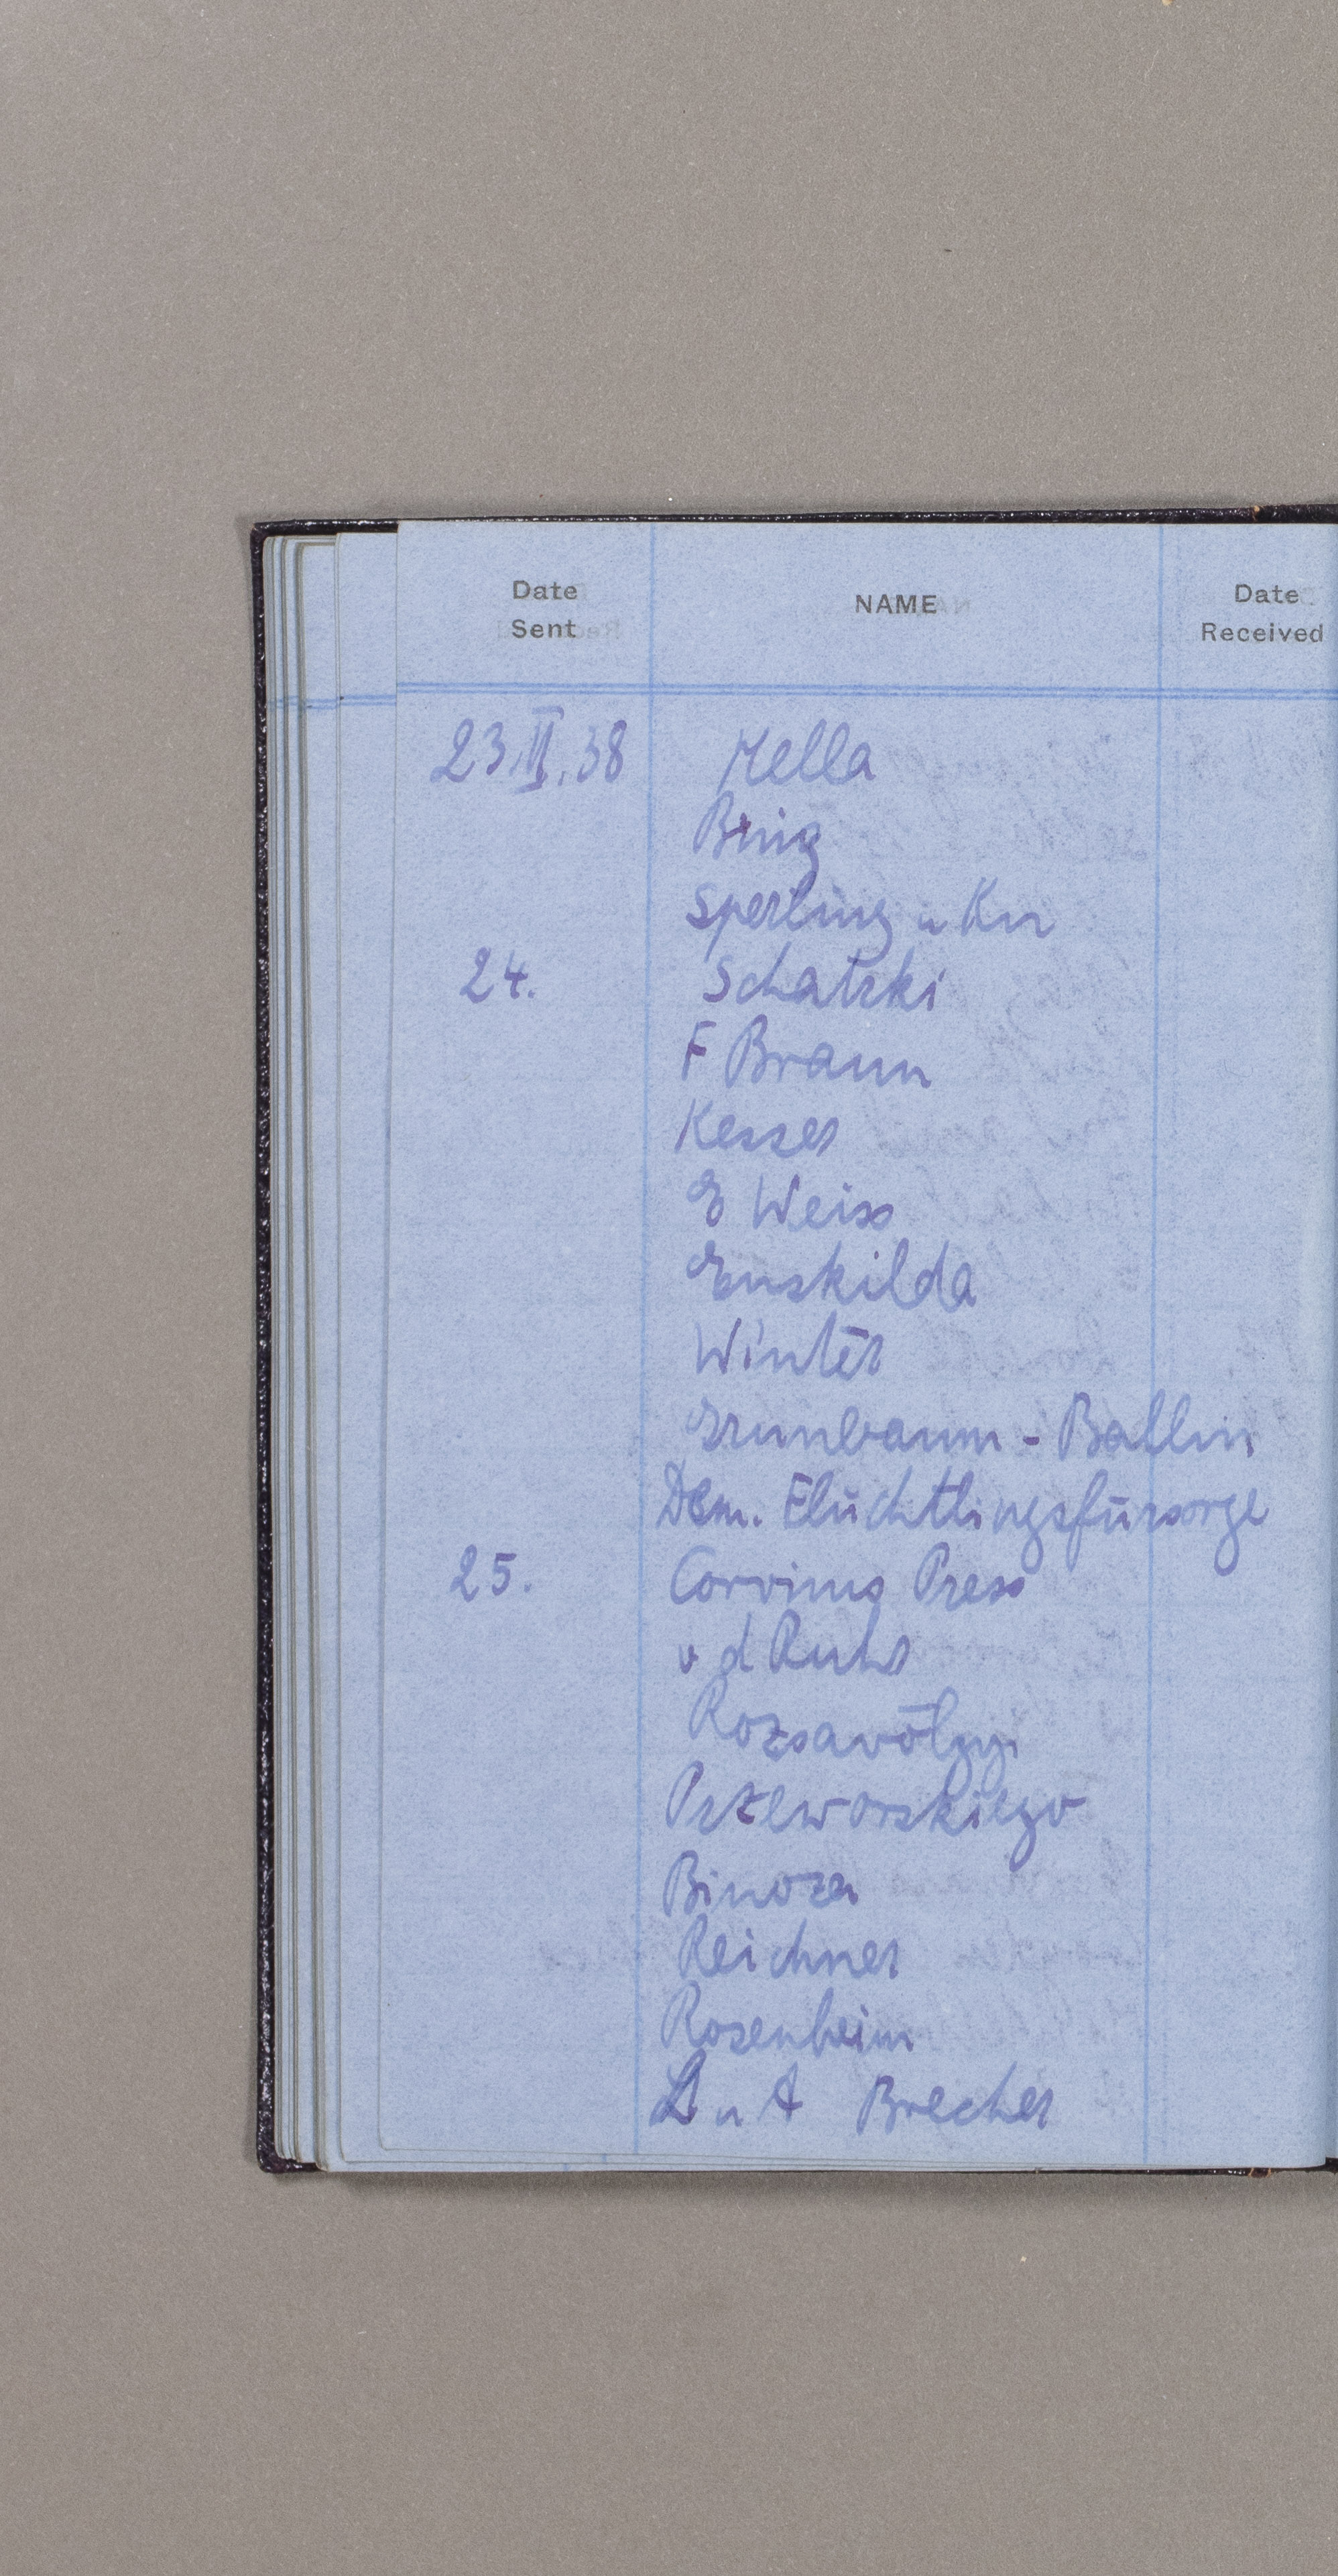 Date Sent NAME Date Received
23.II.38 Hella
Bing
Sperling u Kn
24. Schatzki
F Braun
Kesser
E Weiss
Enskilda
Winter
Grunbaum - Ballin
Dem. Flüchtlingsfürsorge
25. Corvinus Press
v d Ruhr
Rozsavölgyi
Przeworskiego
Binozer
Reichner
Rosenheim
u A Brecher